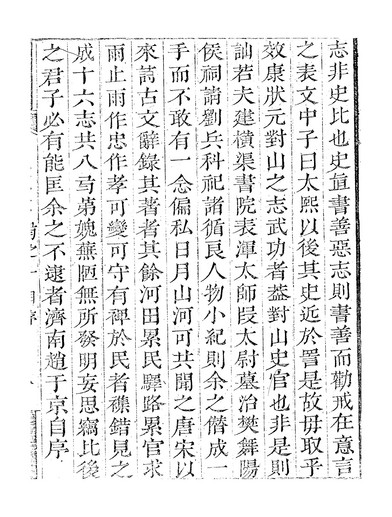 志非史比也史直書善惡志則書善而勸戒在意言
之表文中子曰太熙以後其史近於置是故毋取乎
效康狀元對山之志武功者葢對山史官也非是則
訕若夫建横渠書院表渾太師叚太尉墓治樊舞陽
侯祠請劉兵科祀諸循良人物小紀則余之僭成一
手而不敢有一念偏私日月山河可共聞之唐宋以
來詩古文辭錄其著者其餘河田累民驛路累官求
雨止雨作忠作孝可變可守有禆於民者襍錯見之
成十六志共八弓第媿蕪陋無所發明妄思竊比後
之君子必有能匡余之不逮者濟南趙于京自序